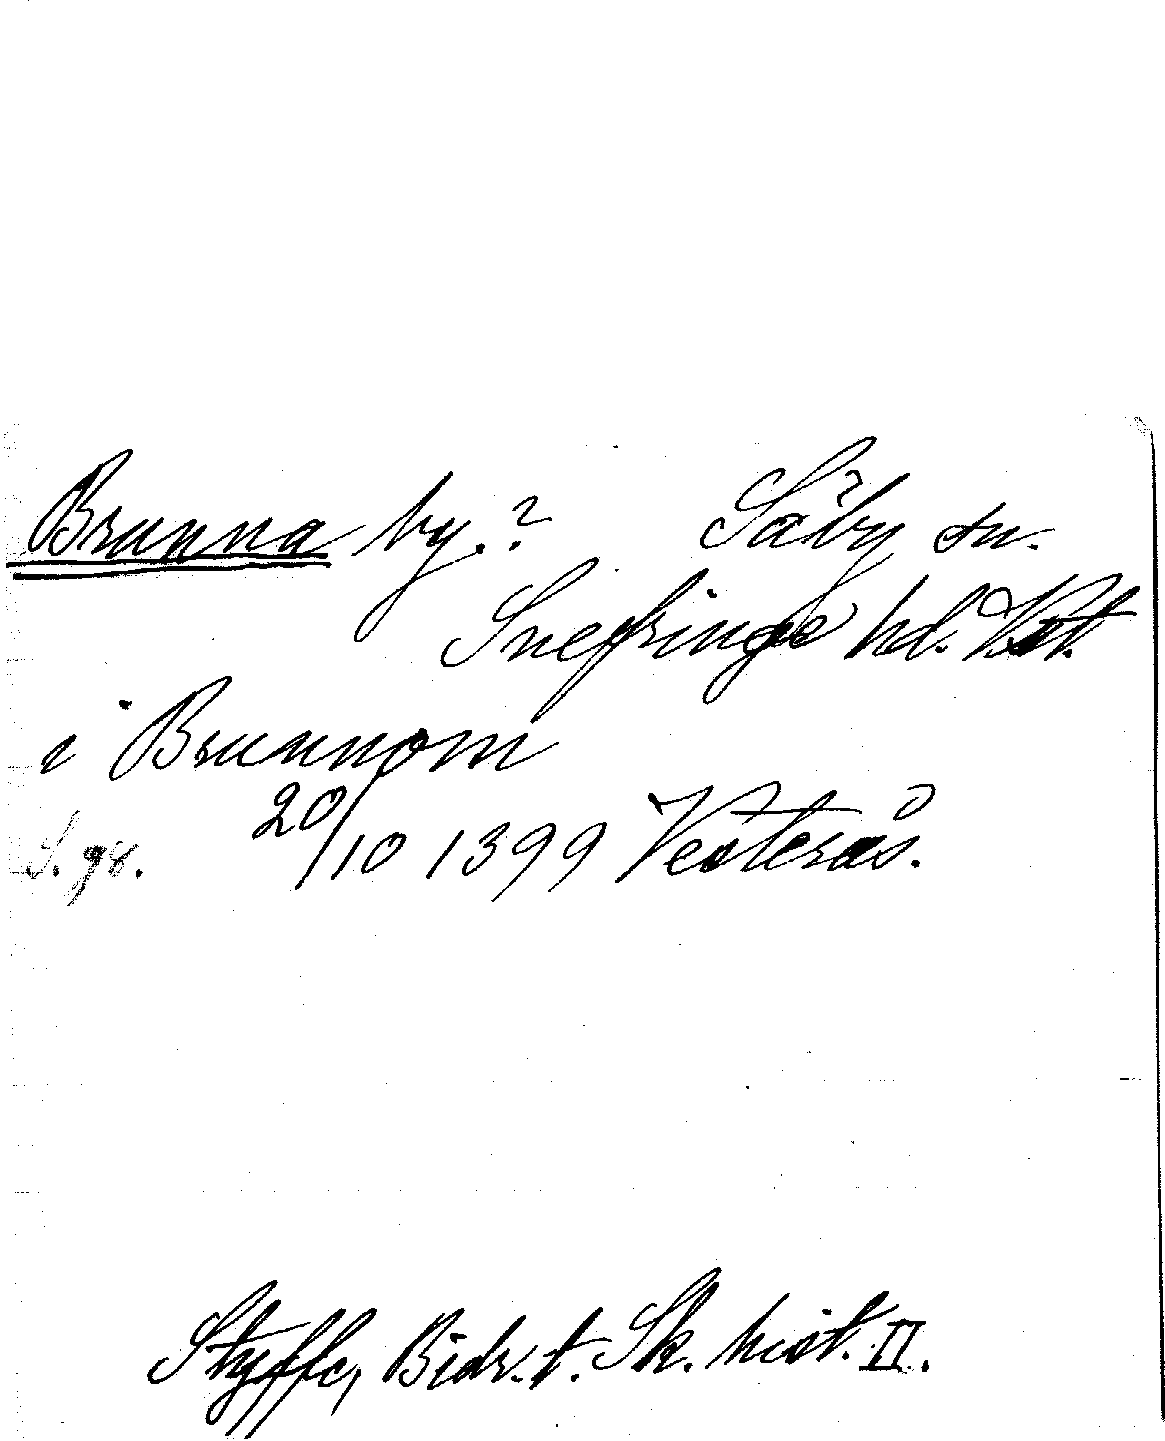 Brunna by.? Säby sn.
Snefringe hd. Vstm.
i Brunnom
S. 98. 20/10 1399 Västerås.
Styffe, Bidr. t. Sk. hist. II.